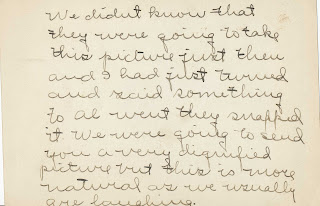 We didn't know that
they were going to take
this picture just then
and I had just turned
and said something
to al went they snapped
it We were going to send
you a very dignified
picture but this is more
natural as we usually
are laughing.